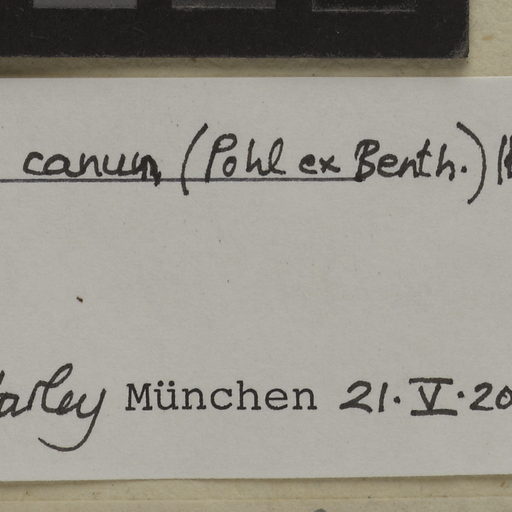 canum (Pohl ex Benth.)
arley München 21.V.20